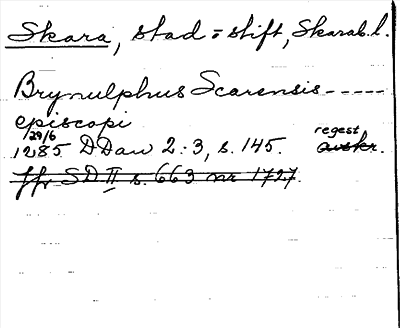 Skara, stad o stift, Skarab. l.
Brynulphus Scarensis -----
episcopi
29/6
1285 DDan 2:3, s. 145. regest avskr.
jfr SD II s. 663 nr 1727.